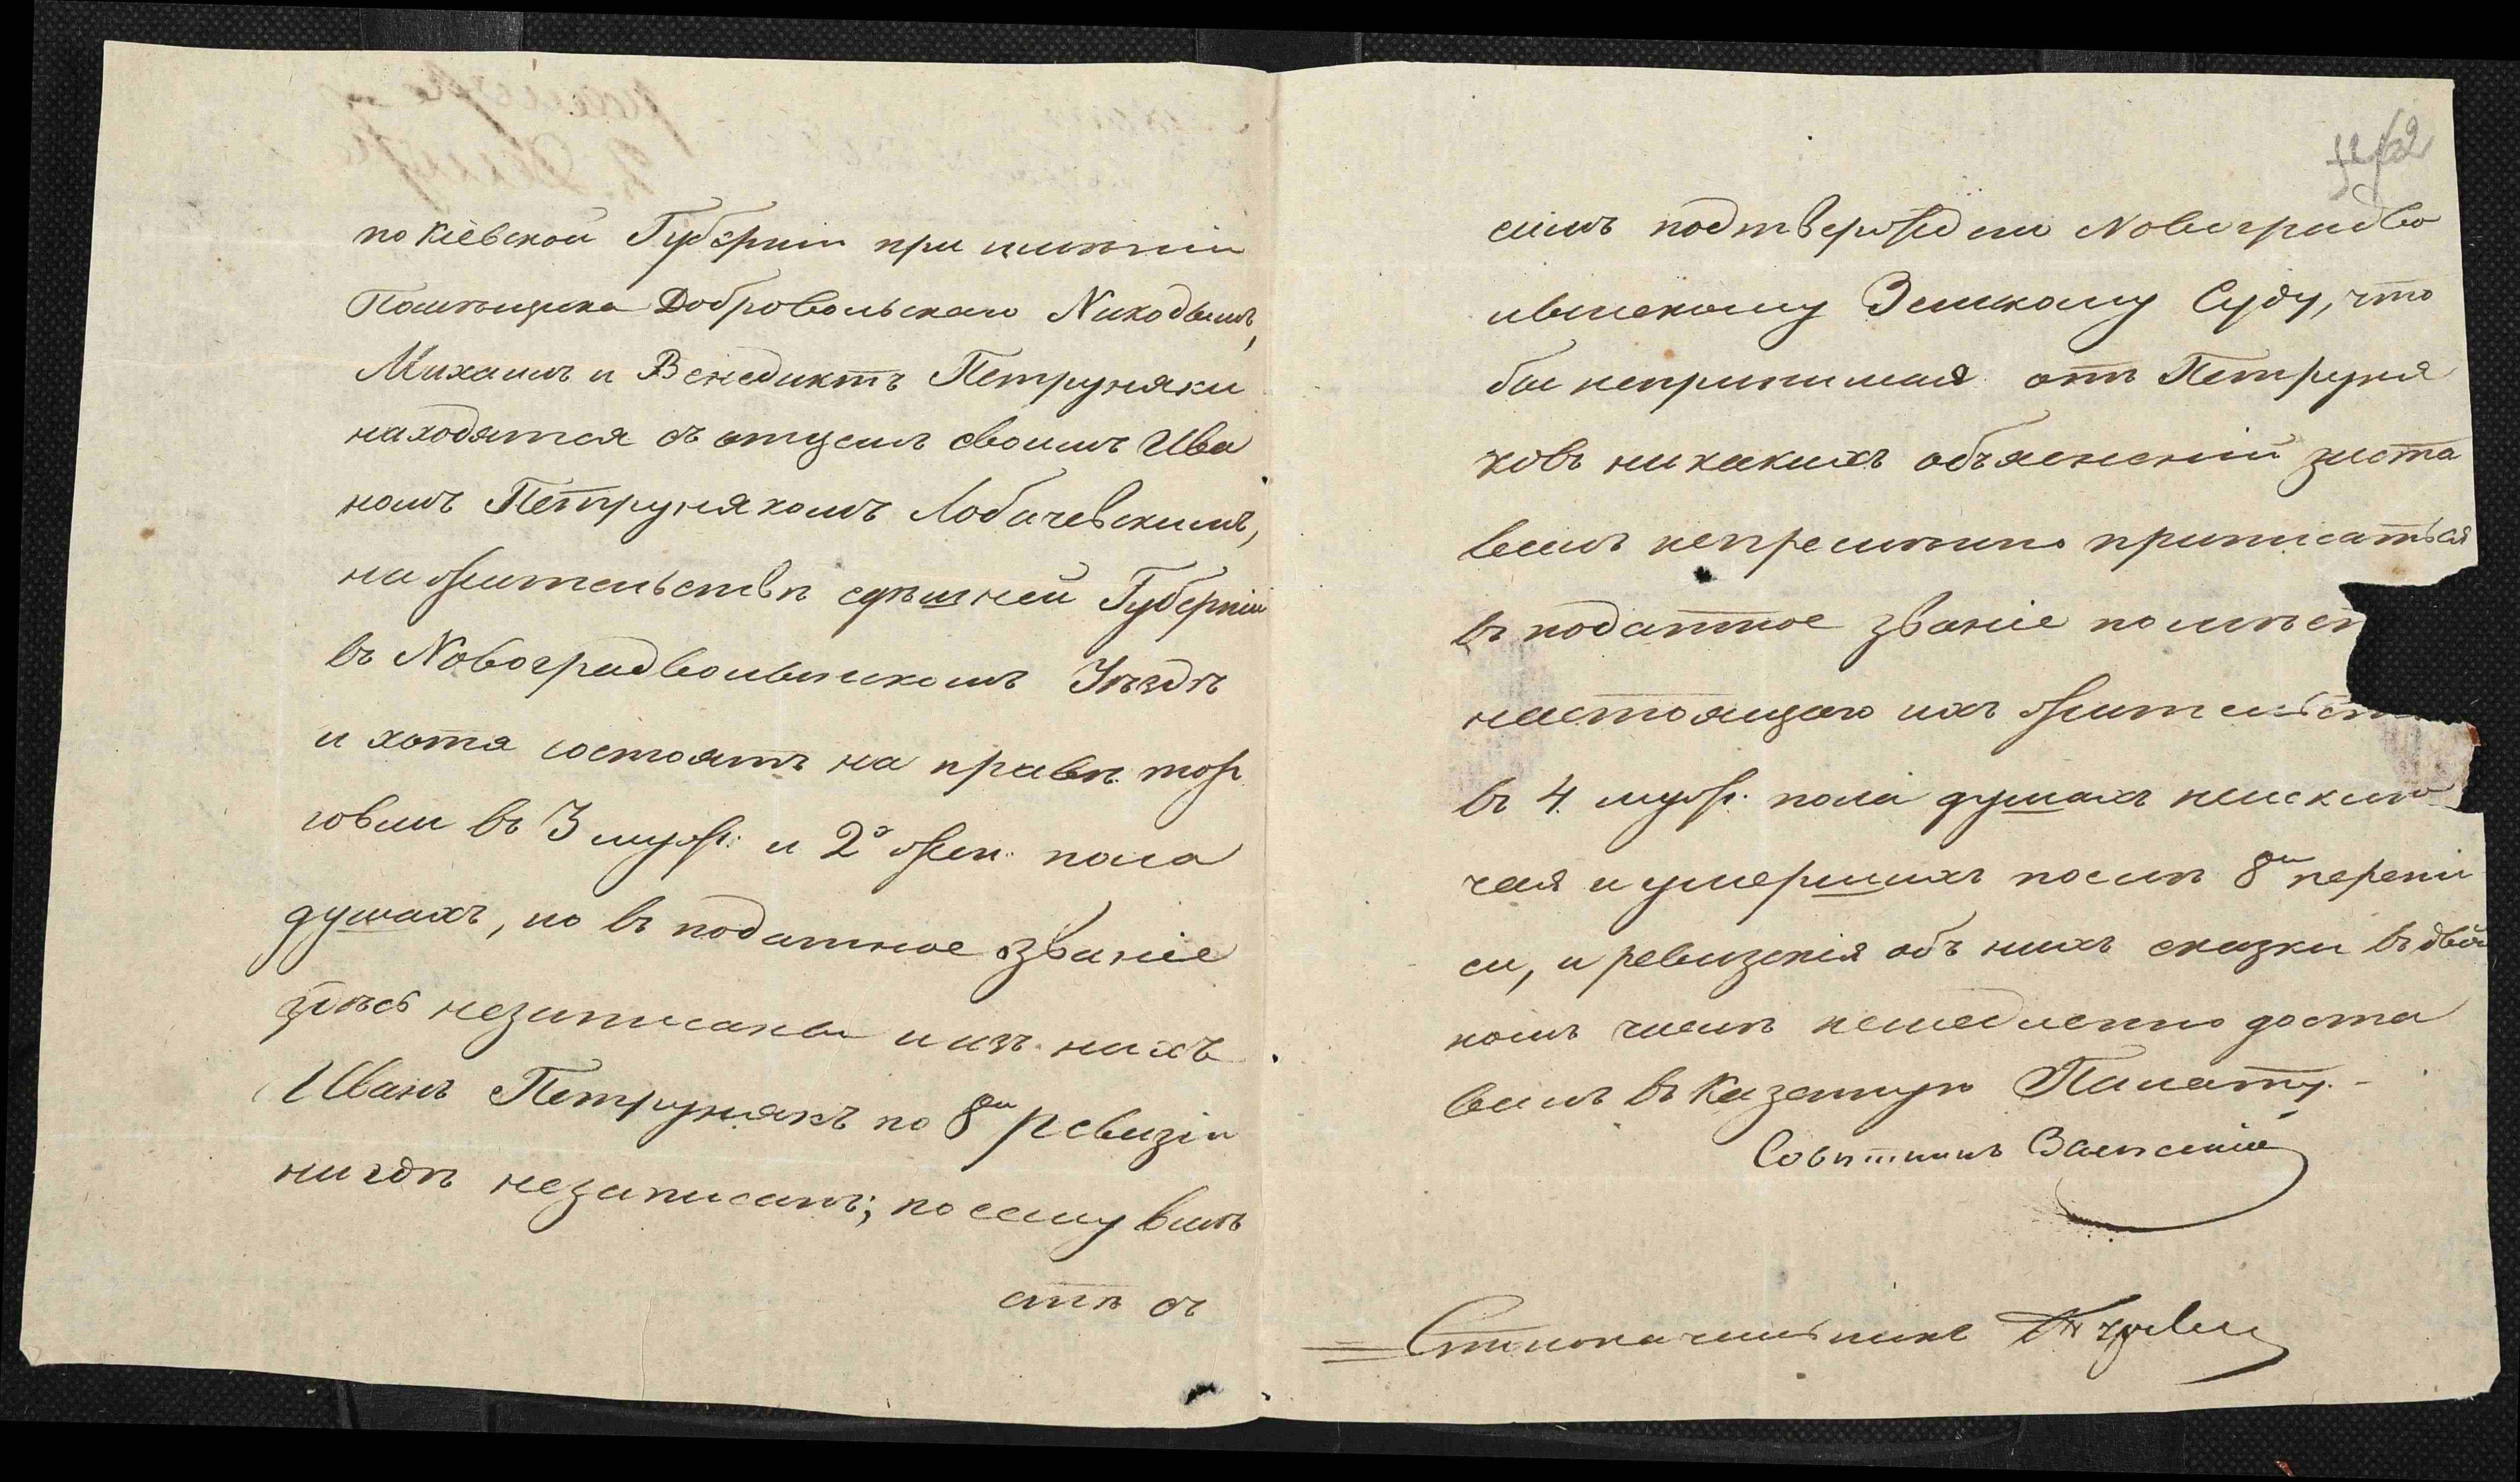 по Кіевской Губерніи при имѣніи
Помѣщика Добровольскаго Никодимъ,
Михаилъ и Венедиктъ Петруняки
находятся съ отцемъ своимъ Ива
номъ Петрунякомъ Лобачевскимъ,
на жительствѣ сдѣшней Губерніи
въ Новоградволынскомъ Уѣздѣ
и хотя состоятъ на правѣ тор
говли въ 3 муж: и 2х жен. пола
душахъ, но въ податное званіе
здѣсь незаписаны и изъ нихъ
Иванъ Петрунякъ по 8й ревизіи
нигдѣ незаписанъ; по сему вмѣ
стѣ съ
симъ подтверждено Новоградво
лынскому Земскому Суду, что
бы непринимая отъ Петруня
ковъ никакихъ объясненій заста
вилъ непремѣнно приписаться
въ податное званіе по мѣст
настоящаго ихъ жительст
въ 4. муж. пола душахъ неисклю
чая и умершихъ послѣ 8й перепи
си, и ревизскія объ нихъ сказки въ двой
номъ числѣ немедленно доста
вилъ въ Казенную Палату.-
Совѣтникъ
Столоначальникъ